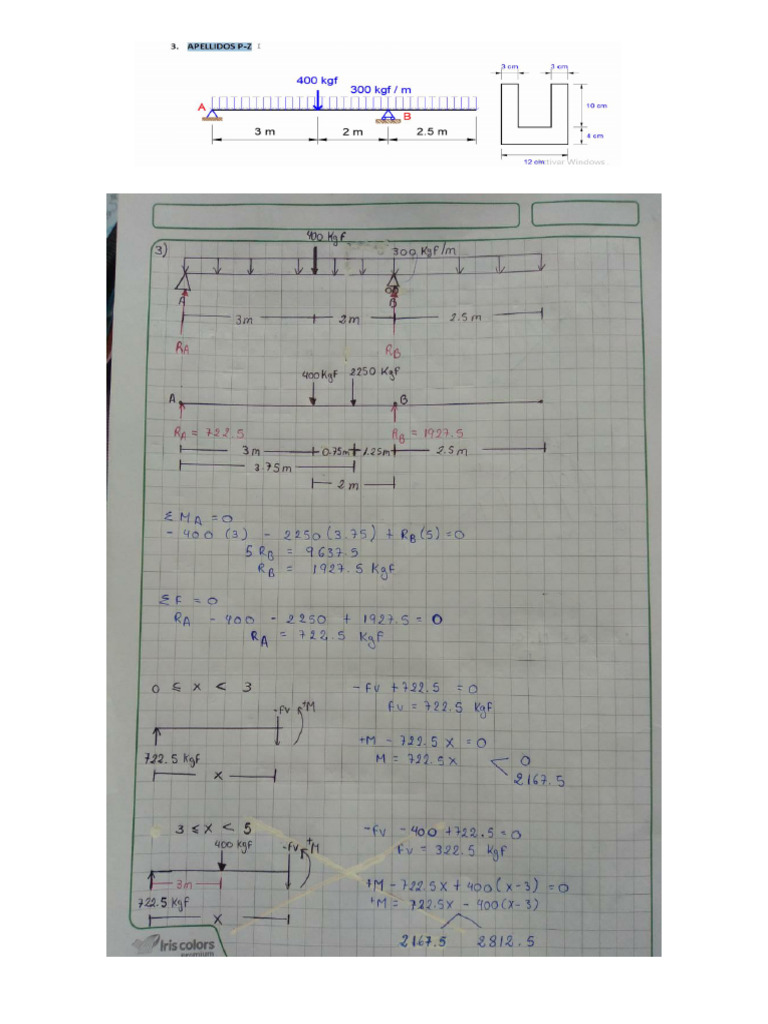 3. APELLIDOS P-Z
3 cm 3 cm
400 kgf
300 kgf / m
A
B
10 cm
4 cm
3 m 2 m 2.5 m
12 cm
Activar Windows
400 Kgf
3)
300 Kgf/m
A B
3m 2m 2.5m
RA RB
400Kgf 2250 Kgf
A B
RA = 722.5 RB = 1927.5
3m 0.75m 1.25m 2.5m
3.75m
2m
ΣMA = 0
- 400 (3) - 2250 (3.75) + RB (5) = 0
5 RB = 9637.5
RB = 1927.5 Kgf
ΣF = 0
RA - 400 - 2250 + 1927.5 = 0
RA = 722.5 Kgf
0 ≤ x < 3
-fv + 722.5 = 0
fv = 722.5 Kgf
-fv +M
+M - 722.5 x = 0
M = 722.5x
0
2167.5
722.5 Kgf
x
3 ≤ x < 5
400 Kgf
-fv +M
-fv - 400 + 722.5 = 0
fv = 322.5 Kgf
3m
+M - 722.5x + 400 (x-3) = 0
+M = 722.5x - 400(x-3)
722.5 Kgf
x
2167.5 2812.5
Iris colors
premium